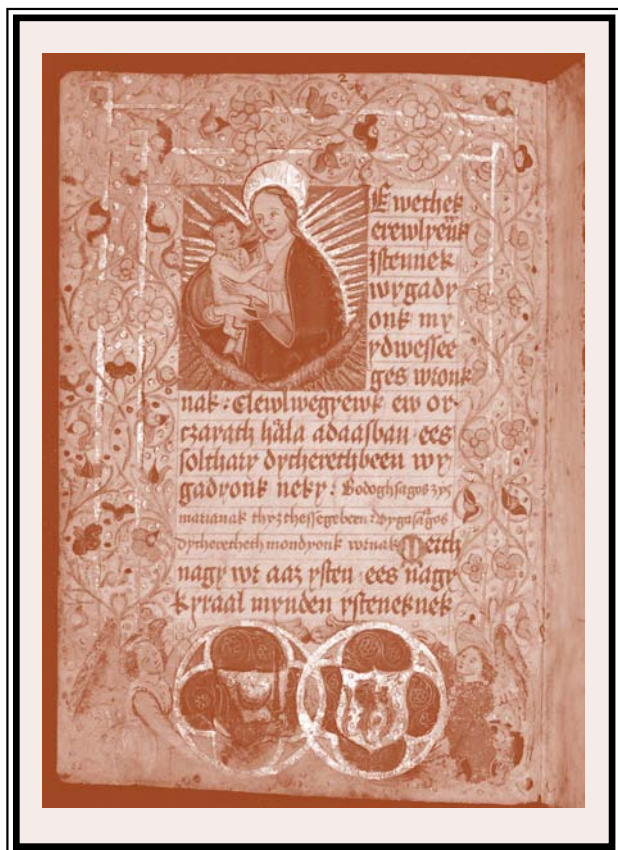 Ewethek
erewlyewnk
ystennek
wygady
onk my
ydwessee
ges wronk
nak : Elewl wegyewk ew or-
czarath hála adaasban ees
solthary dycherethbeen wy
gadyonk neky : Bodoghsagos zyz
marianak thyzthessegebeen : Vygasagos
dycheretheth mondyonk wrnak Merth
nagy wr aaz ysten ees nagy
kyraal mynden ysteneknek